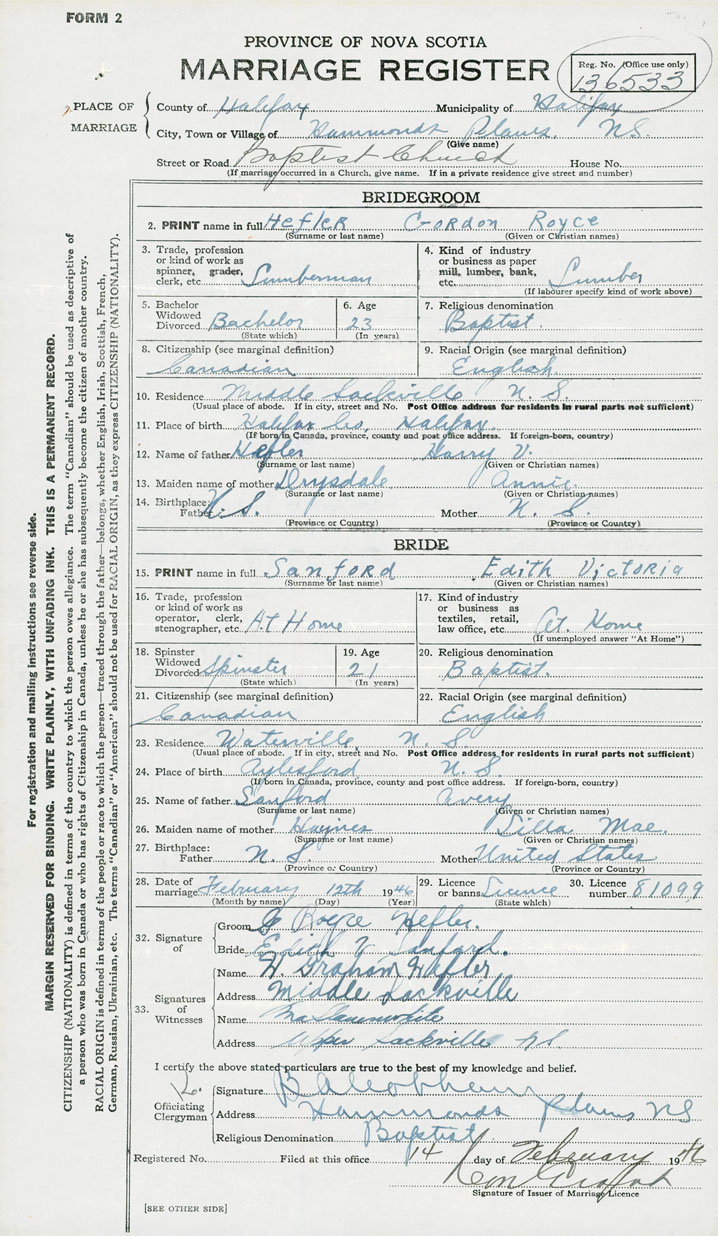 FORM 2
PROVINCE OF NOVA SCOTIA
MARRIAGE REGISTER
Reg. No. (Office use only)
136533
PLACE OF MARRIAGE
County of Halifax Municipality of Halifax
City, Town or Village of Hammonds Plains, N.S.
(Give name)
Street or Road Baptist Church House No.
(If marriage occurred in a Church, give name. If in a private residence give street and number)
BRIDEGROOM
2. PRINT name in full Hefler Gordon Royce
(Surname or last name) (Given or Christian names)
3. Trade, profession or kind of work as spinner, grader, clerk, etc. Lumberman
4. Kind of industry or business as paper mill, lumber, bank, etc. Lumber
(If labourer specify kind of work above)
5. Bachelor Widowed Divorced Bachelor
(State which)
6. Age 23
(In years)
7. Religious denomination Baptist.
8. Citizenship (see marginal definition) Canadian
9. Racial Origin (see marginal definition) English
10. Residence Middle Sackville N. S.
(Usual place of abode. If in city, street and No. Post Office address for residents in rural parts not sufficient)
11. Place of birth Halifax Co. Halifax.
(If born in Canada, province, county and post office address. If foreign-born, country)
12. Name of father Hefler Harry V.
(Surname or last name) (Given or Christian names)
13. Maiden name of mother Drysdale Annie.
(Surname or last name) (Given or Christian names)
14. Birthplace: Father N. S. Mother N. S.
(Province or Country) (Province or Country)
BRIDE
15. PRINT name in full Sanford Edith Victoria
(Surname or last name) (Given or Christian names)
16. Trade, profession or kind of work as operator, clerk, stenographer, etc. At Home
17. Kind of industry or business as textiles, retail, law office, etc. At. Home
(If unemployed answer "At Home")
18. Spinster Widowed Divorced Spinster
(State which)
19. Age 21
(In years)
20. Religious denomination Baptist.
21. Citizenship (see marginal definition) Canadian
22. Racial Origin (see marginal definition) English
23. Residence Waterville N. S.
(Usual place of abode. If in city, street and No. Post Office address for residents in rural parts not sufficient)
24. Place of birth Aylesford N. S.
(If born in Canada, province, county and post office address. If foreign-born, country)
25. Name of father Sanford Avery
(Surname or last name) (Given or Christian names)
26. Maiden name of mother Haines Dilla Mae.
(Surname or last name) (Given or Christian names)
27. Birthplace: Father N. S. Mother United States
(Province or Country) (Province or Country)
28. Date of marriage February 12th 1946
(Month by name) (Day) (Year)
29. Licence or banns Licence
(State which)
30. Licence number 81099
32. Signature of
Groom G Royce Hefler.
Bride Edith V Sanford.
33. Signatures of Witnesses
Name H. Graham Hefler
Address Middle Sackville
Name
Address Upper Sackville NS
I certify the above stated particulars are true to the best of my knowledge and belief.
Officiating Clergyman
Signature
Address Hammonds Plains NS
Religious Denomination Baptist
Registered No. Filed at this office 14 day of February 1946
Signature of Issuer of Marriage Licence
[SEE OTHER SIDE]
For registration and mailing instructions see reverse side.
MARGIN RESERVED FOR BINDING. WRITE PLAINLY, WITH UNFADING INK. THIS IS A PERMANENT RECORD.
CITIZENSHIP (NATIONALITY) is defined in terms of the country to which the person owes allegiance. The term "Canadian" should be used as descriptive of
a person who was born in Canada or who has rights of Citizenship in Canada, unless he or she has subsequently become the citizen of another country.
RACIAL ORIGIN is defined in terms of the people or race to which the person—traced through the father—belongs, whether English, Irish, Scottish, French,
German, Russian, Ukrainian, etc. The terms "Canadian" or "American" should not be used for RACIAL ORIGIN, as they express CITIZENSHIP (NATIONALITY).